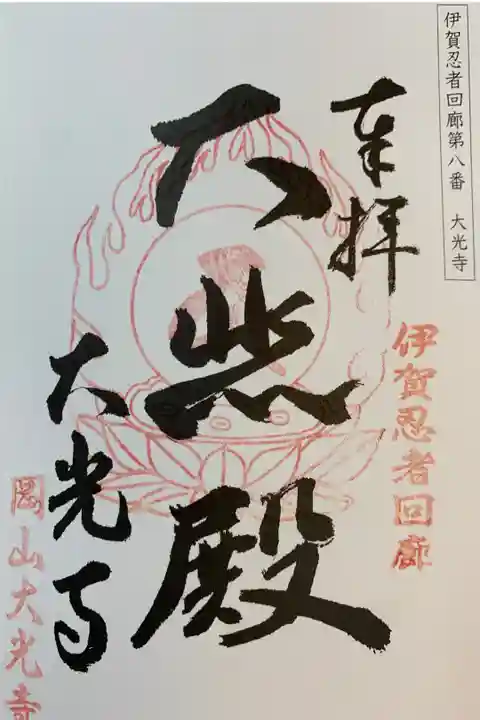 伊賀忍者回廊第八番 大光寺
奉拝
伊賀忍者回廊
大悲殿
大光寺
岡山大光寺